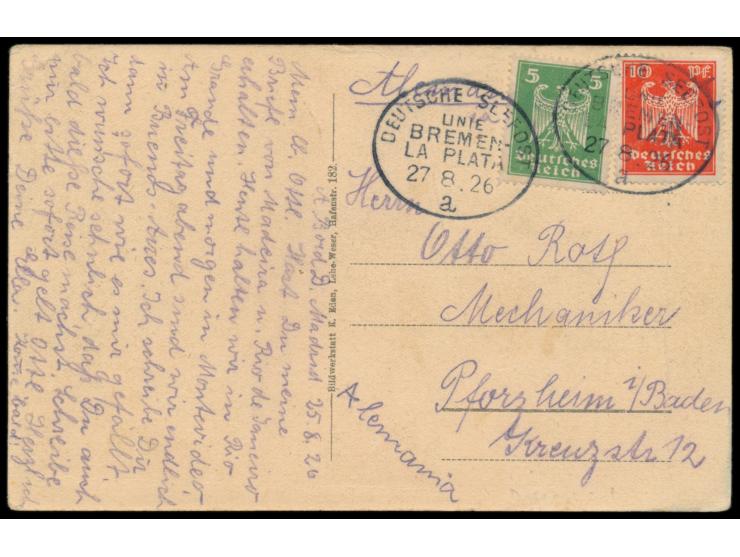 a. Bord D. Madrid 25.8.26
Mein lb. Otto! Hast Du meine
Briefe von Madeira u. Rio de Janeiro
erhalten Heute halten wir in Rio
Grande und morgen in Montvideo
Am Freitag abend sind wir endlich
in Buenos Aires. Ich schreibe Dir
dann sofort wie es mir gefällt
Ich wünsche sehnlich daß Du auch
bald diese Reise machst. Schreibe
mir bitte sofort gelt Otto Herzlich
Grüße Deine
Bildwerkstatt K. Eden, Lehe-Weser, Hafenstr. 182.
DEUTSCHE SEEPOST
LINIE
BREMEN-
LA PLATA
27.8.26
a
5 5
Deutsches
Reich
10 Pf.
Deutsches
Reich
DEUTSCHE SEEPOST
PLATA
27 8
a
Herrn
Otto Roth
Mechaniker
Pforzheim i/Baden
Kreuzstr 12
Alemania